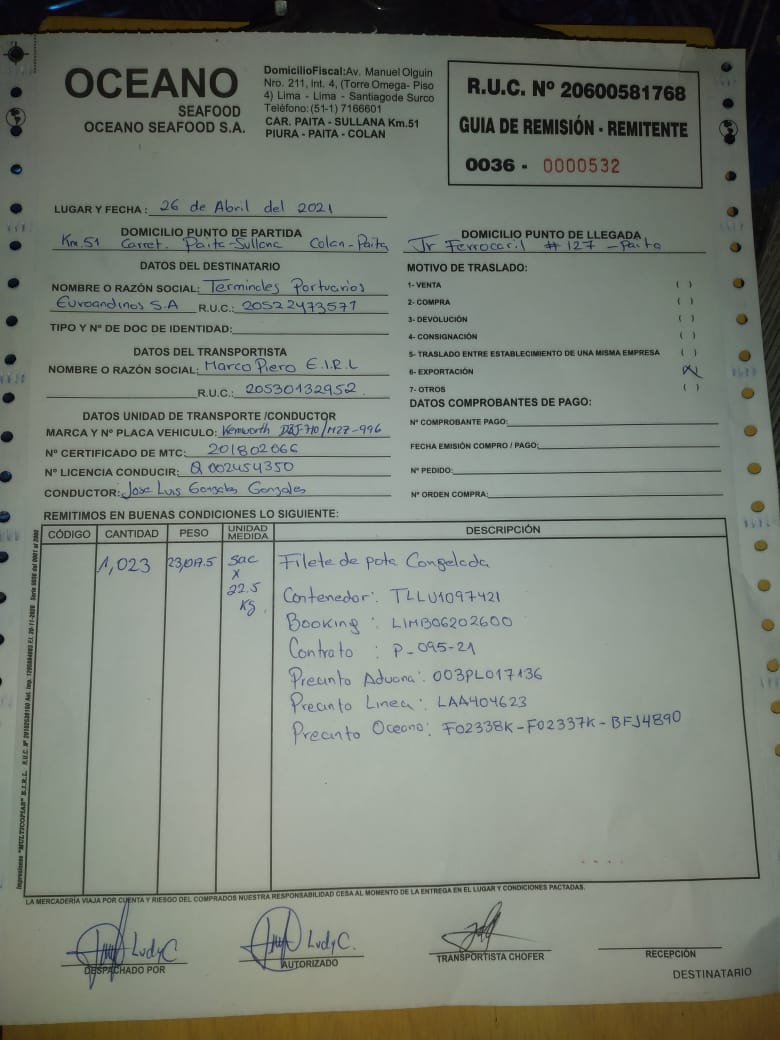 OCEANO
SEAFOOD
OCEANO SEAFOOD S.A.
DomicilioFiscal:Av. Manuel Olguin
Nro. 211, Int. 4, (Torre Omega- Piso
4) Lima - Lima - Santiagode Surco
Teléfono:(51-1) 7166601
CAR. PAITA - SULLANA Km.51
PIURA - PAITA - COLAN
R.U.C. Nº 20600581768
GUIA DE REMISIÓN - REMITENTE
0036 - 0000532
LUGAR Y FECHA : 26 de Abril del 2021
DOMICILIO PUNTO DE PARTIDA
Km.51 Carret. Paita-Sullana Colan-Paita
DOMICILIO PUNTO DE LLEGADA
Jr Ferrocaril # 127 - Paita
DATOS DEL DESTINATARIO
NOMBRE O RAZÓN SOCIAL: Terminales Portuarios
Euroandinos S.A R.U.C.: 20522473571
TIPO Y Nº DE DOC DE IDENTIDAD:
DATOS DEL TRANSPORTISTA
NOMBRE O RAZÓN SOCIAL: Marco Piero E.I.R.L
R.U.C.: 20530132952
DATOS UNIDAD DE TRANSPORTE /CONDUCTOR
MARCA Y Nº PLACA VEHICULO: Kenworth /M2Z-996
Nº CERTIFICADO DE MTC: 201802066
Nº LICENCIA CONDUCIR: Q 002454350
CONDUCTOR: Jose Luis Gonzales Gonzales
MOTIVO DE TRASLADO:
1- VENTA ( )
2- COMPRA ( )
3- DEVOLUCIÓN ( )
4- CONSIGNACIÓN ( )
5- TRASLADO ENTRE ESTABLECIMIENTO DE UNA MISMA EMPRESA ( )
6- EXPORTACIÓN (X)
7- OTROS ( )
DATOS COMPROBANTES DE PAGO:
Nº COMPROBANTE PAGO:
FECHA EMISIÓN COMPRO / PAGO:
Nº PEDIDO:
Nº ORDEN COMPRA:
REMITIMOS EN BUENAS CONDICIONES LO SIGUIENTE:
CÓDIGO CANTIDAD PESO UNIDAD MEDIDA DESCRIPCIÓN
1,023 23,017.5 Sac x 22.5 Kg. Filete de pota Congelada
Contenedor: TLLU1097421
Booking : LIMB06202600
Contrato : P-095-21
Precinto Aduana: 003PL017136
Precinto Linea: LAA404623
Precinto Oceano: F02338K-F02337K-BFJ4890
Impresiones "MULTICOPIAS" E.I.R.L.
LA MERCADERÍA VIAJA POR CUENTA Y RIESGO DEL COMPRADOS NUESTRA RESPONSABILIDAD CESA AL MOMENTO DE LA ENTREGA EN EL LUGAR Y CONDICIONES PACTADAS.
Ludy C
DESPACHADO POR
Ludy C.
AUTORIZADO
TRANSPORTISTA CHOFER
RECEPCIÓN
DESTINATARIO